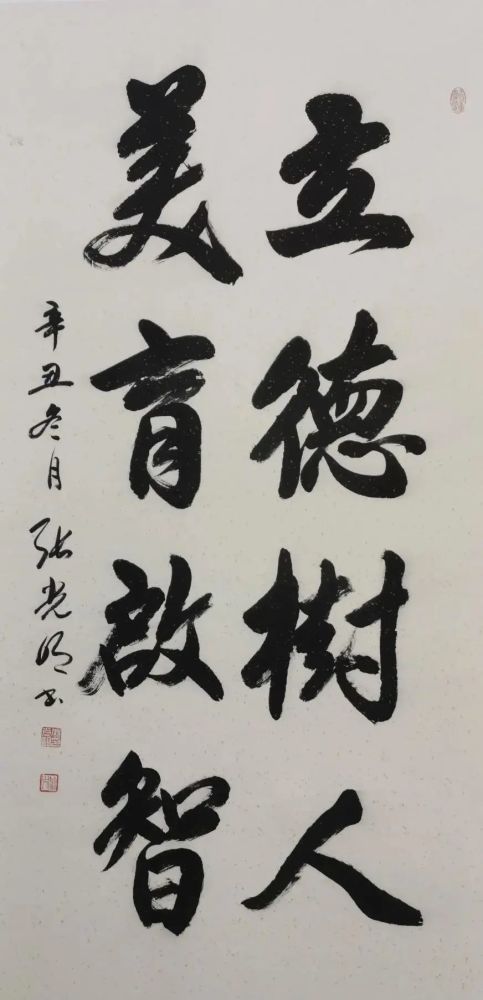 立德樹人
美育啟智
辛丑冬月 张光明书